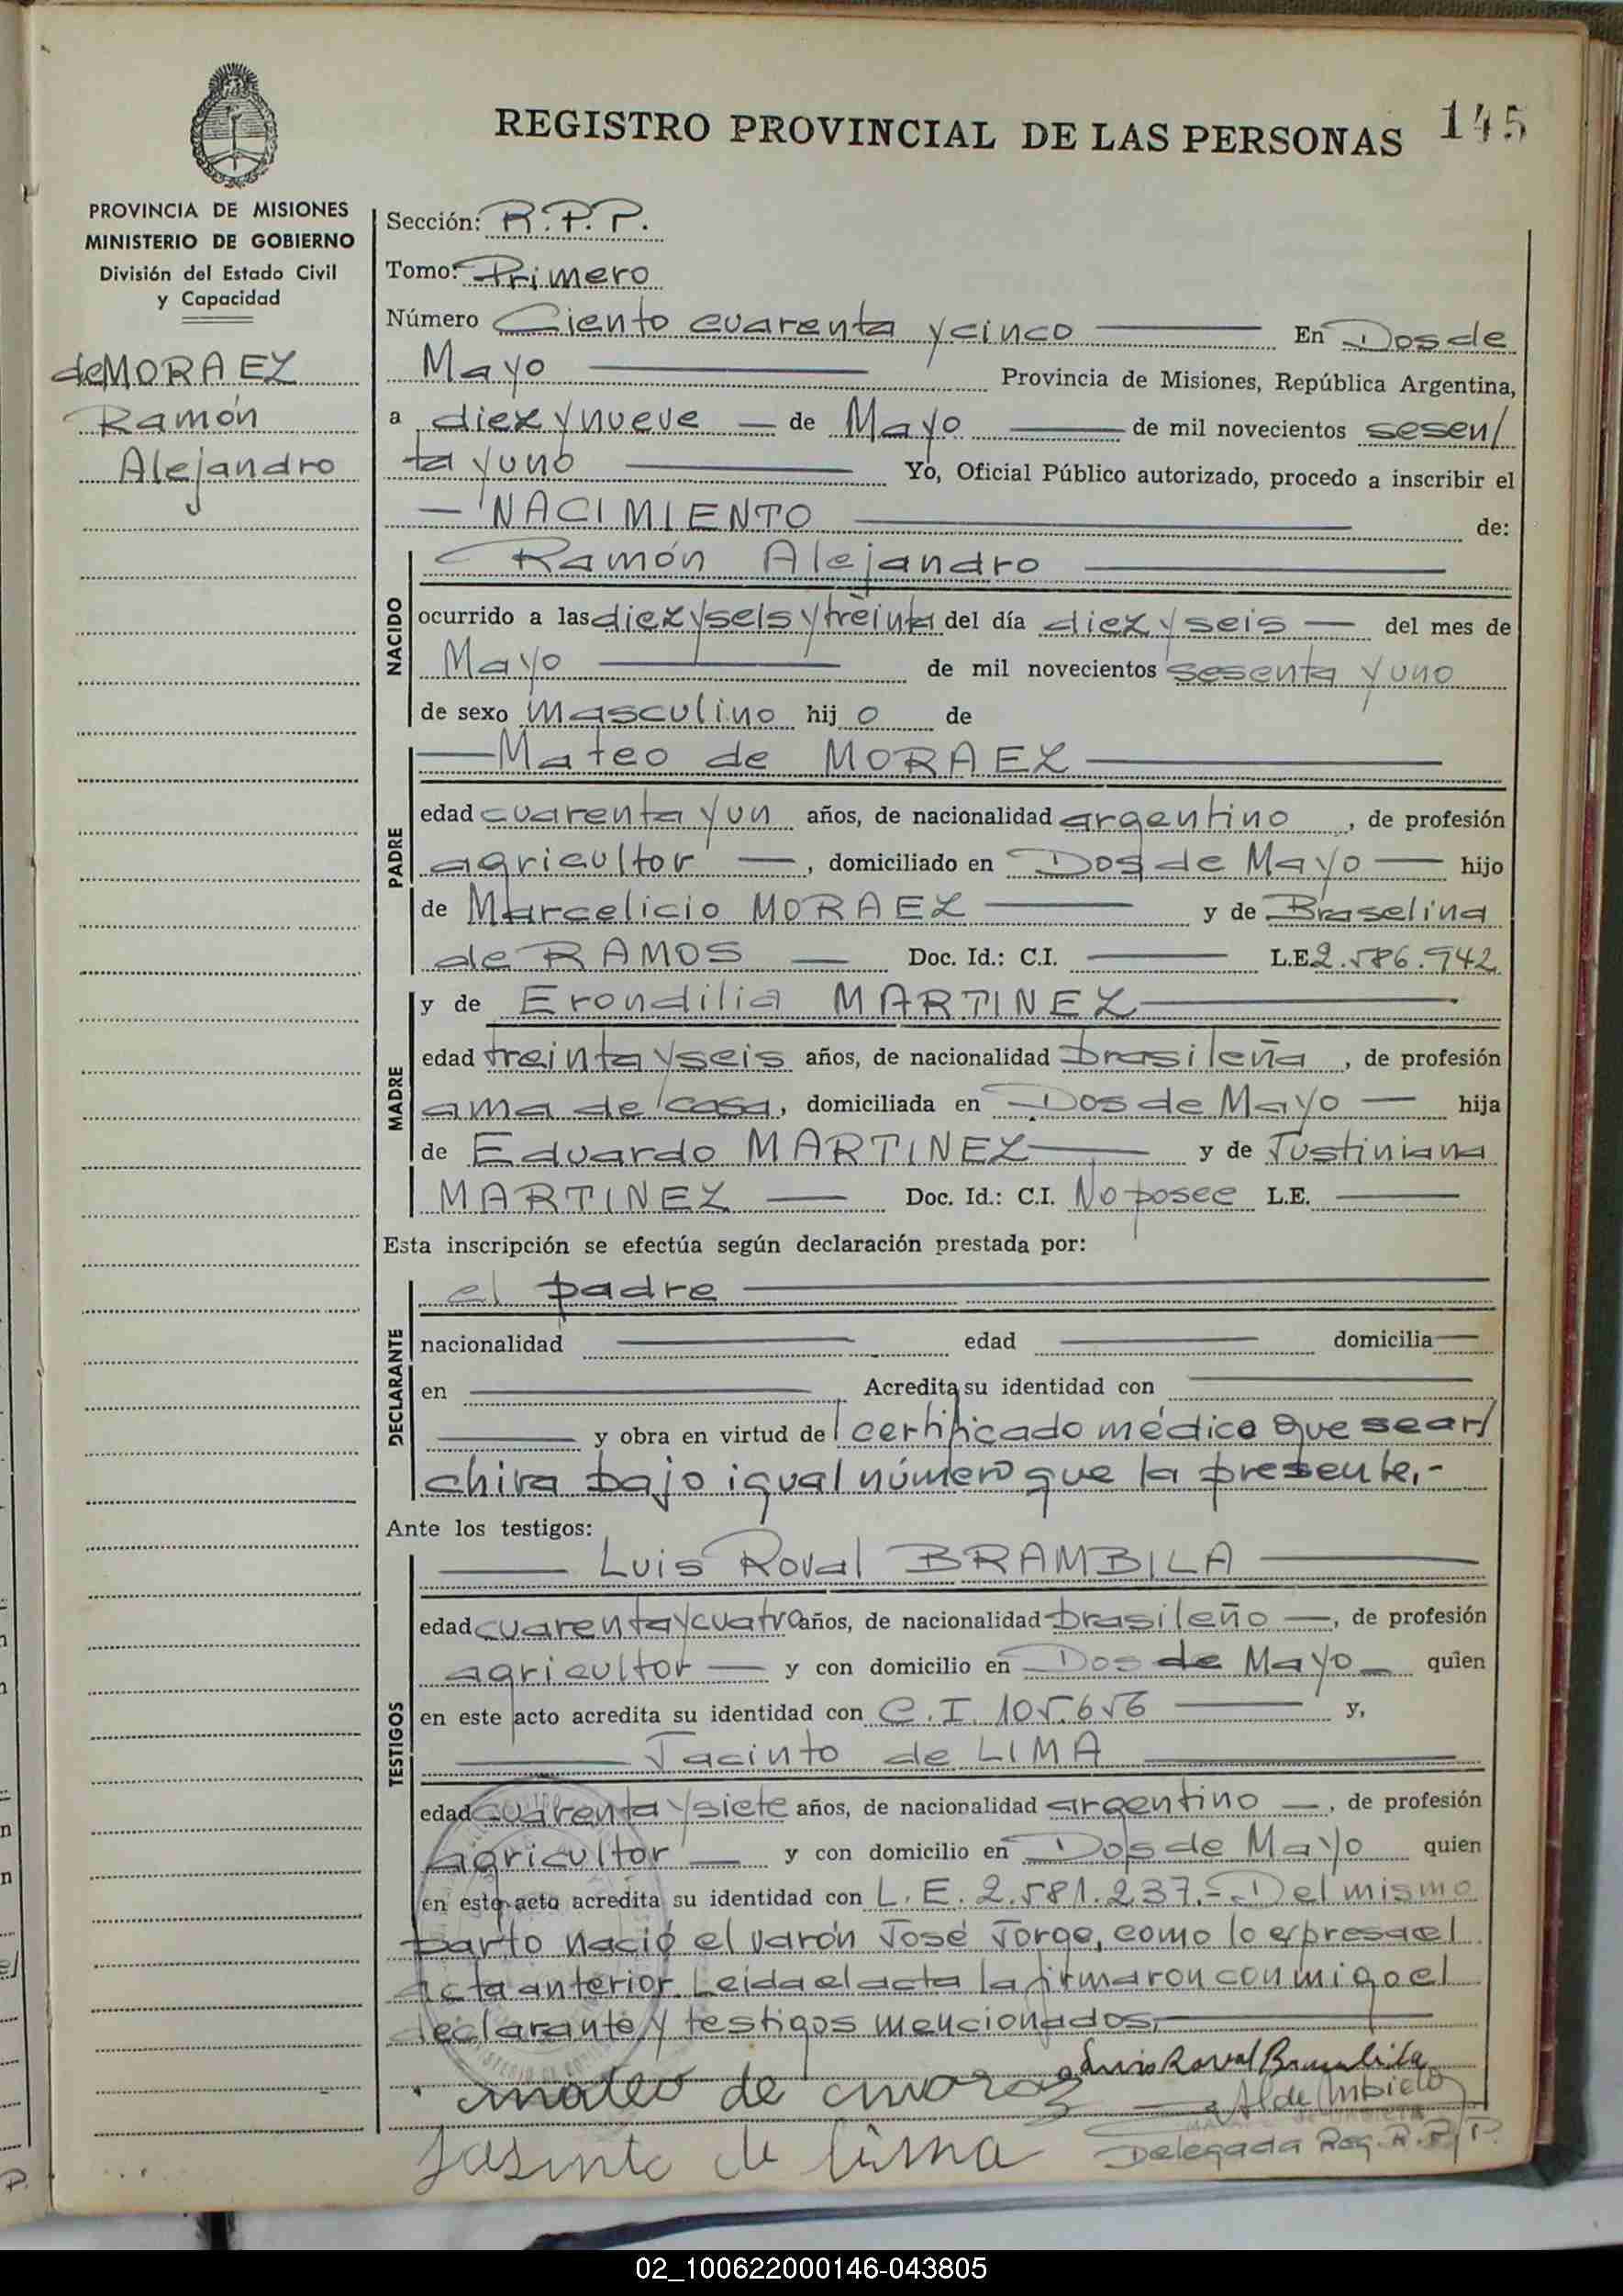 REGISTRO PROVINCIAL DE LAS PERSONAS 145
PROVINCIA DE MISIONES
MINISTERIO DE GOBIERNO
División del Estado Civil
y Capacidad
de MORAEZ
Ramón
Alejandro
Sección: R.P.P.
Tomo: Primero
Número Ciento cuarenta y cinco En Dos de
Mayo Provincia de Misiones, República Argentina,
a diez y nueve de Mayo de mil novecientos sesen/
ta y uno Yo, Oficial Público autorizado, procedo a inscribir el
NACIMIENTO de:
NACIDO
Ramón Alejandro
ocurrido a las diez y seis y treinta del día diez y seis del mes de
Mayo de mil novecientos sesenta y uno
de sexo masculino hijo de
PADRE
Mateo de MORAEZ
edad cuarenta y un años, de nacionalidad argentino, de profesión
agricultor, domiciliado en Dos de Mayo hijo
de Marcelicio MORAEZ y de Braselina
de RAMOS Doc. Id.: C.I. L.E. 2.586.942
MADRE
y de Erondilia MARTINEZ
edad treinta y seis años, de nacionalidad brasileña, de profesión
ama de casa, domiciliada en Dos de Mayo hija
de Eduardo MARTINEZ y de Justiniana
MARTINEZ Doc. Id.: C.I. No posee L.E.
Esta inscripción se efectúa según declaración prestada por:
DECLARANTE
el padre
nacionalidad edad domicilia
en Acredita su identidad con
y obra en virtud del certificado médico que se ar/
chiva bajo igual número que la presente.-
Ante los testigos:
TESTIGOS
Luis Roval BRAMBILA
edad cuarenta y cuatro años, de nacionalidad brasileño, de profesión
agricultor y con domicilio en Dos de Mayo quien
en este acto acredita su identidad con C.I. 105.656 y,
Jacinto de LIMA
edad cuarenta y siete años, de nacionalidad argentino, de profesión
agricultor y con domicilio en Dos de Mayo quien
en este acto acredita su identidad con L.E. 2.581.237.- Del mismo
parto nació el varón José Jorge, como lo expresa el
acta anterior. Leída el acta la firmaron conmigo el
declarante y testigos mencionados.
Luis Roval Brambila
mateo de moraez
Jasinto de lima
Delegada Reg. R.P.P.
02_100622000146-043805